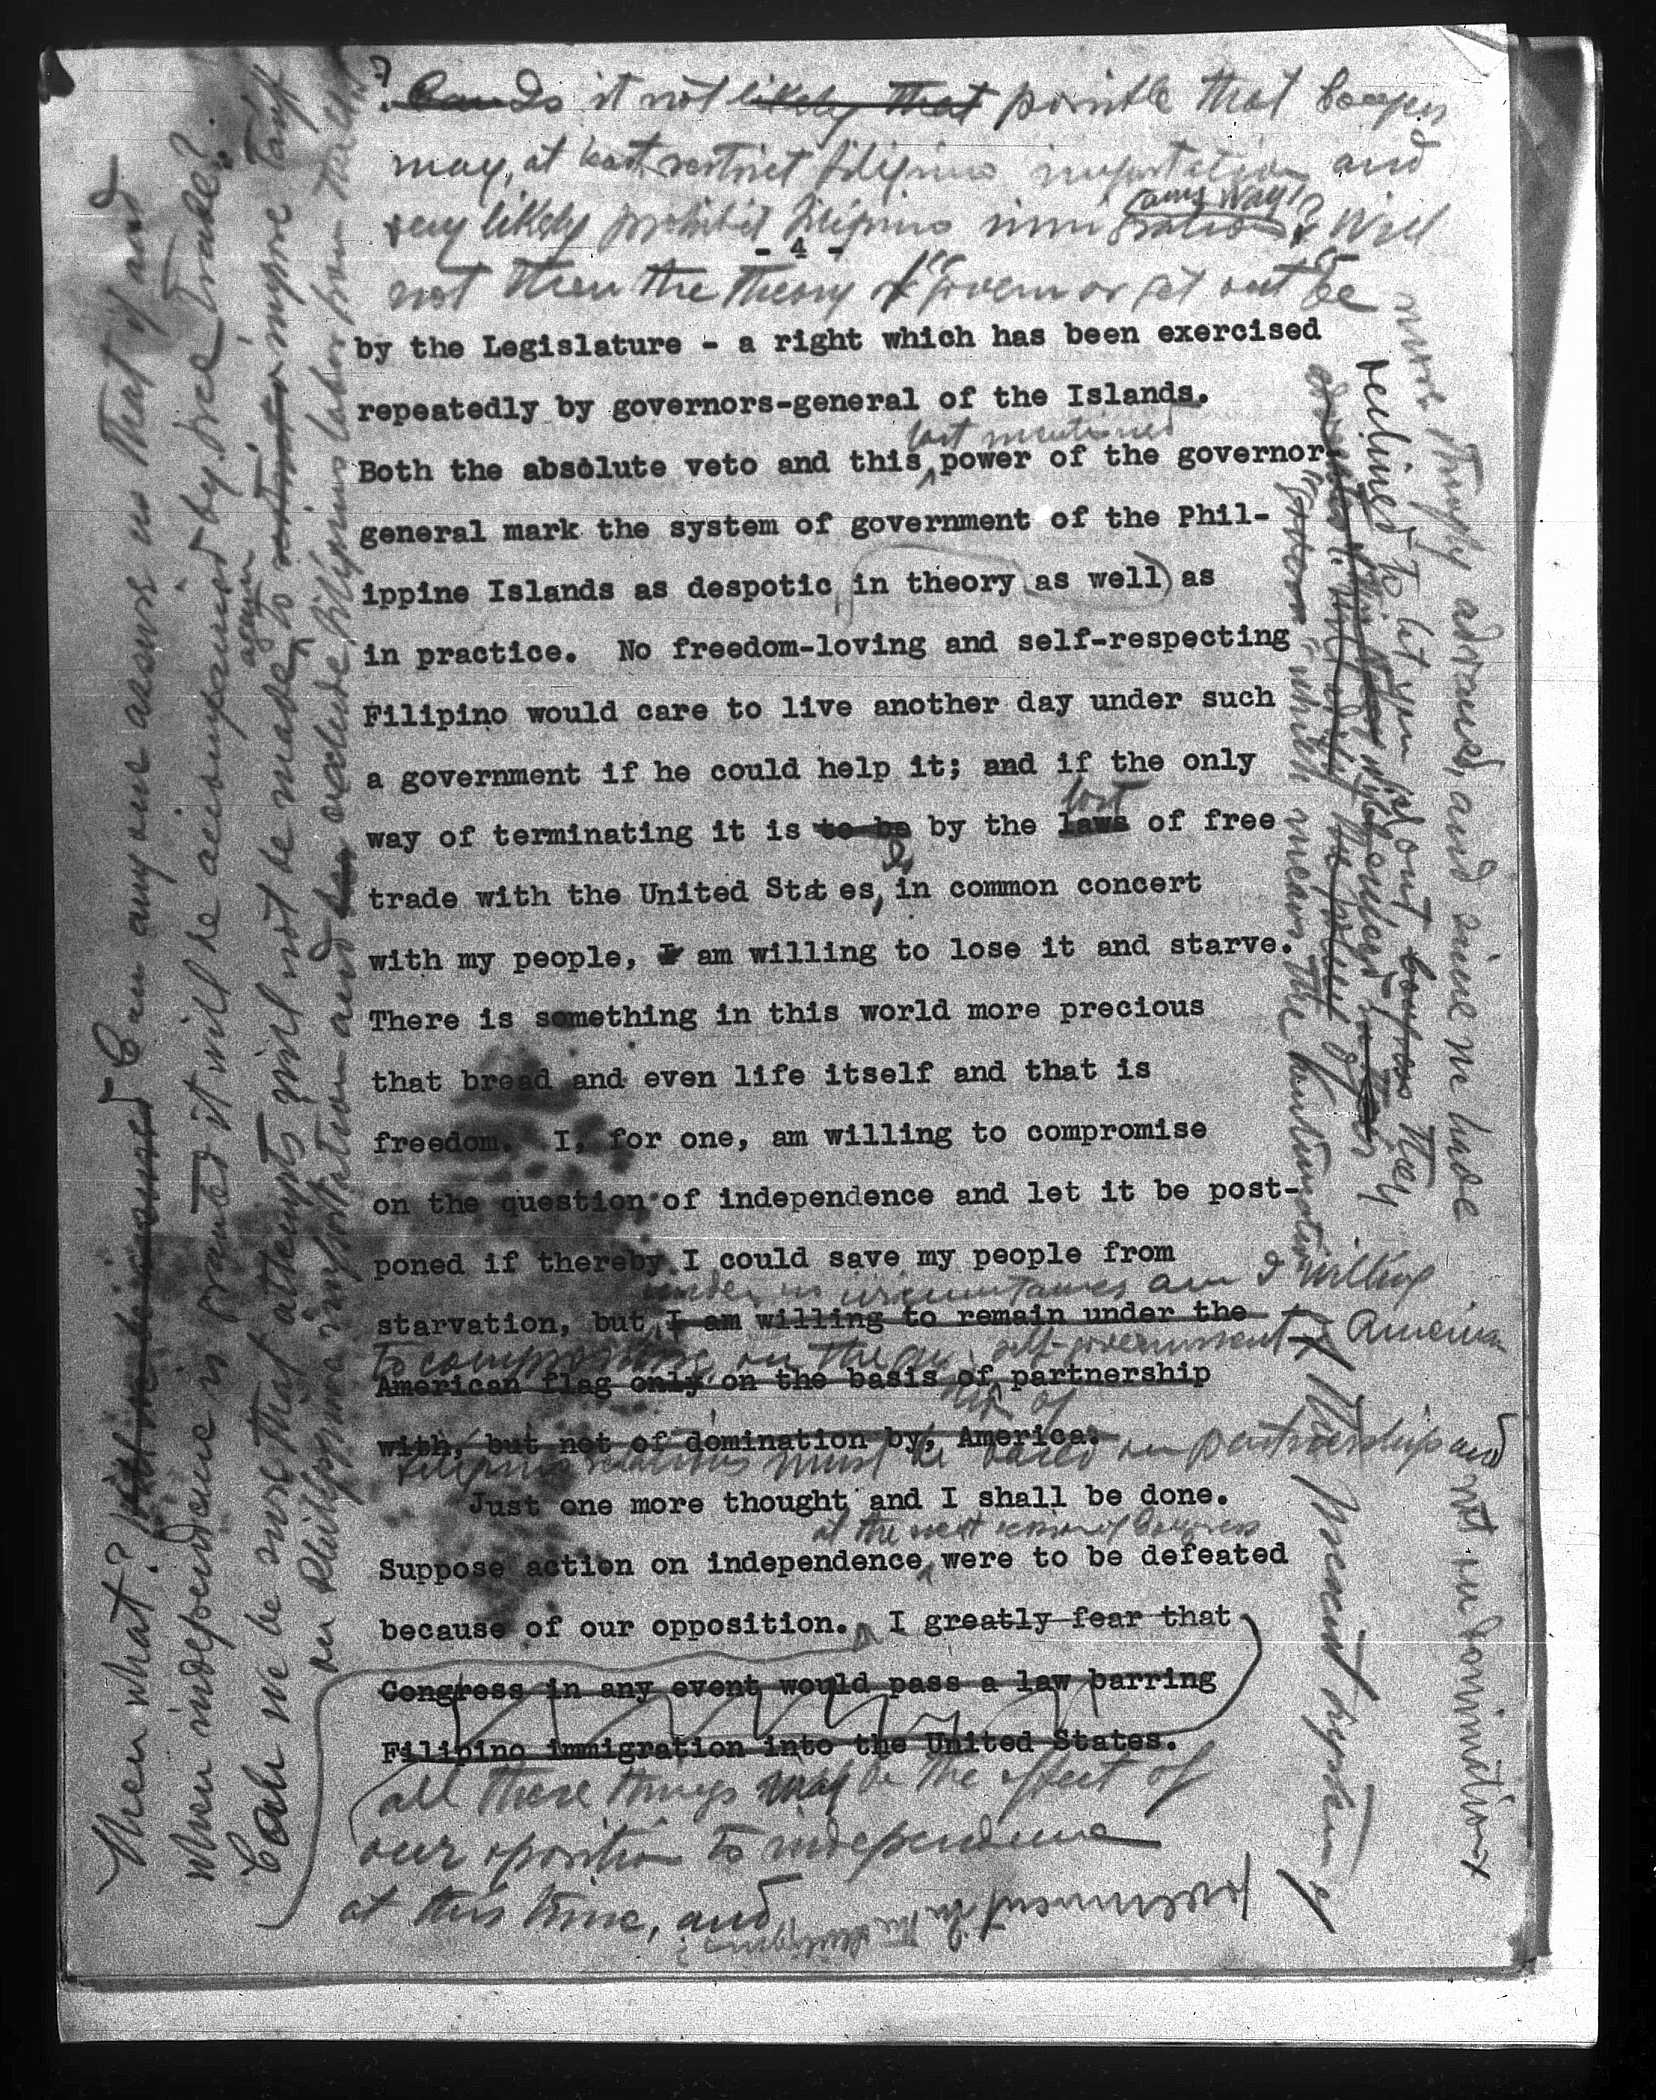 ? Can Is it not likely that possible that Congress
may, at least, restrict Filipino importation and
very likely prohibit Filipino immigration any way? Will
- 4 -
not then the theory of "govern or get out" be
by the Legislature - a right which has been exercised
repeatedly by governors-general of the Islands.
last mentioned
Both the absolute veto and this power of the governor-
general mark the system of government of the Phil-
ippine Islands as despotic in theory as well as
in practice. No freedom-loving and self-respecting
Filipino would care to live another day under such
a government if he could help it; and if the only
lost
way of terminating it is to be by the laws of free
trade with the United States, in common concert
with my people, I am willing to lose it and starve.
There is something in this world more precious
that bread and even life itself and that is
freedom. I, for one, am willing to compromise
on the question of independence and let it be post-
poned if thereby I could save my people from
under no circumstances am I willing
starvation, but I am willing to remain under the
to compromise on the self-government America
American flag only on the basis of partnership
with, but not of domination by, America.
Filipino relations must be based on partnership and
not on domination
Just one more thought and I shall be done.
at the next session of Congress
Suppose action on independence were to be defeated
because of our opposition. I greatly fear that
Congress in any event would pass a law barring
Filipino immigration into the United States.
all these things may be the effect of
our opposition to independence
at this time, and
Then what? Can any one assure us that if and
when independence is granted it will be accompanied by free trade?
Can we be sure that attempts will not be made again to impose tariff
on Philippine importation and exclude Filipino labor from
more strongly advanced, and since we have
declined to let you out Congress they
which means the continuation
of the present system of
government in the Philippines?